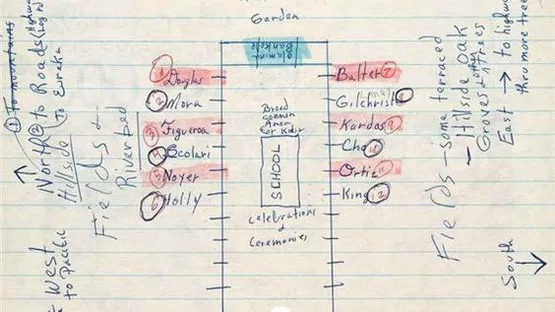 Garden
Alumni
Bankole
① Douglas
② Mora
③ Figueroa
④ Scolari
⑤ Noyer
⑥ Holly
Balter ⑦
Gilchrist ⑧
Kardos ⑨
Cho ⑩
Ortiz ⑪
King ⑫
Broad
common
Area
for Kids
SCHOOL
Celebrations
&
Ceremonies
① To mountains
North ② to Roads
to Eureka
Hillside
Fields &
Riverbed
West
to Pacific
Fields - some terraced
- Hillside oak
Groves
trees
East → to highway
thru more trees
South